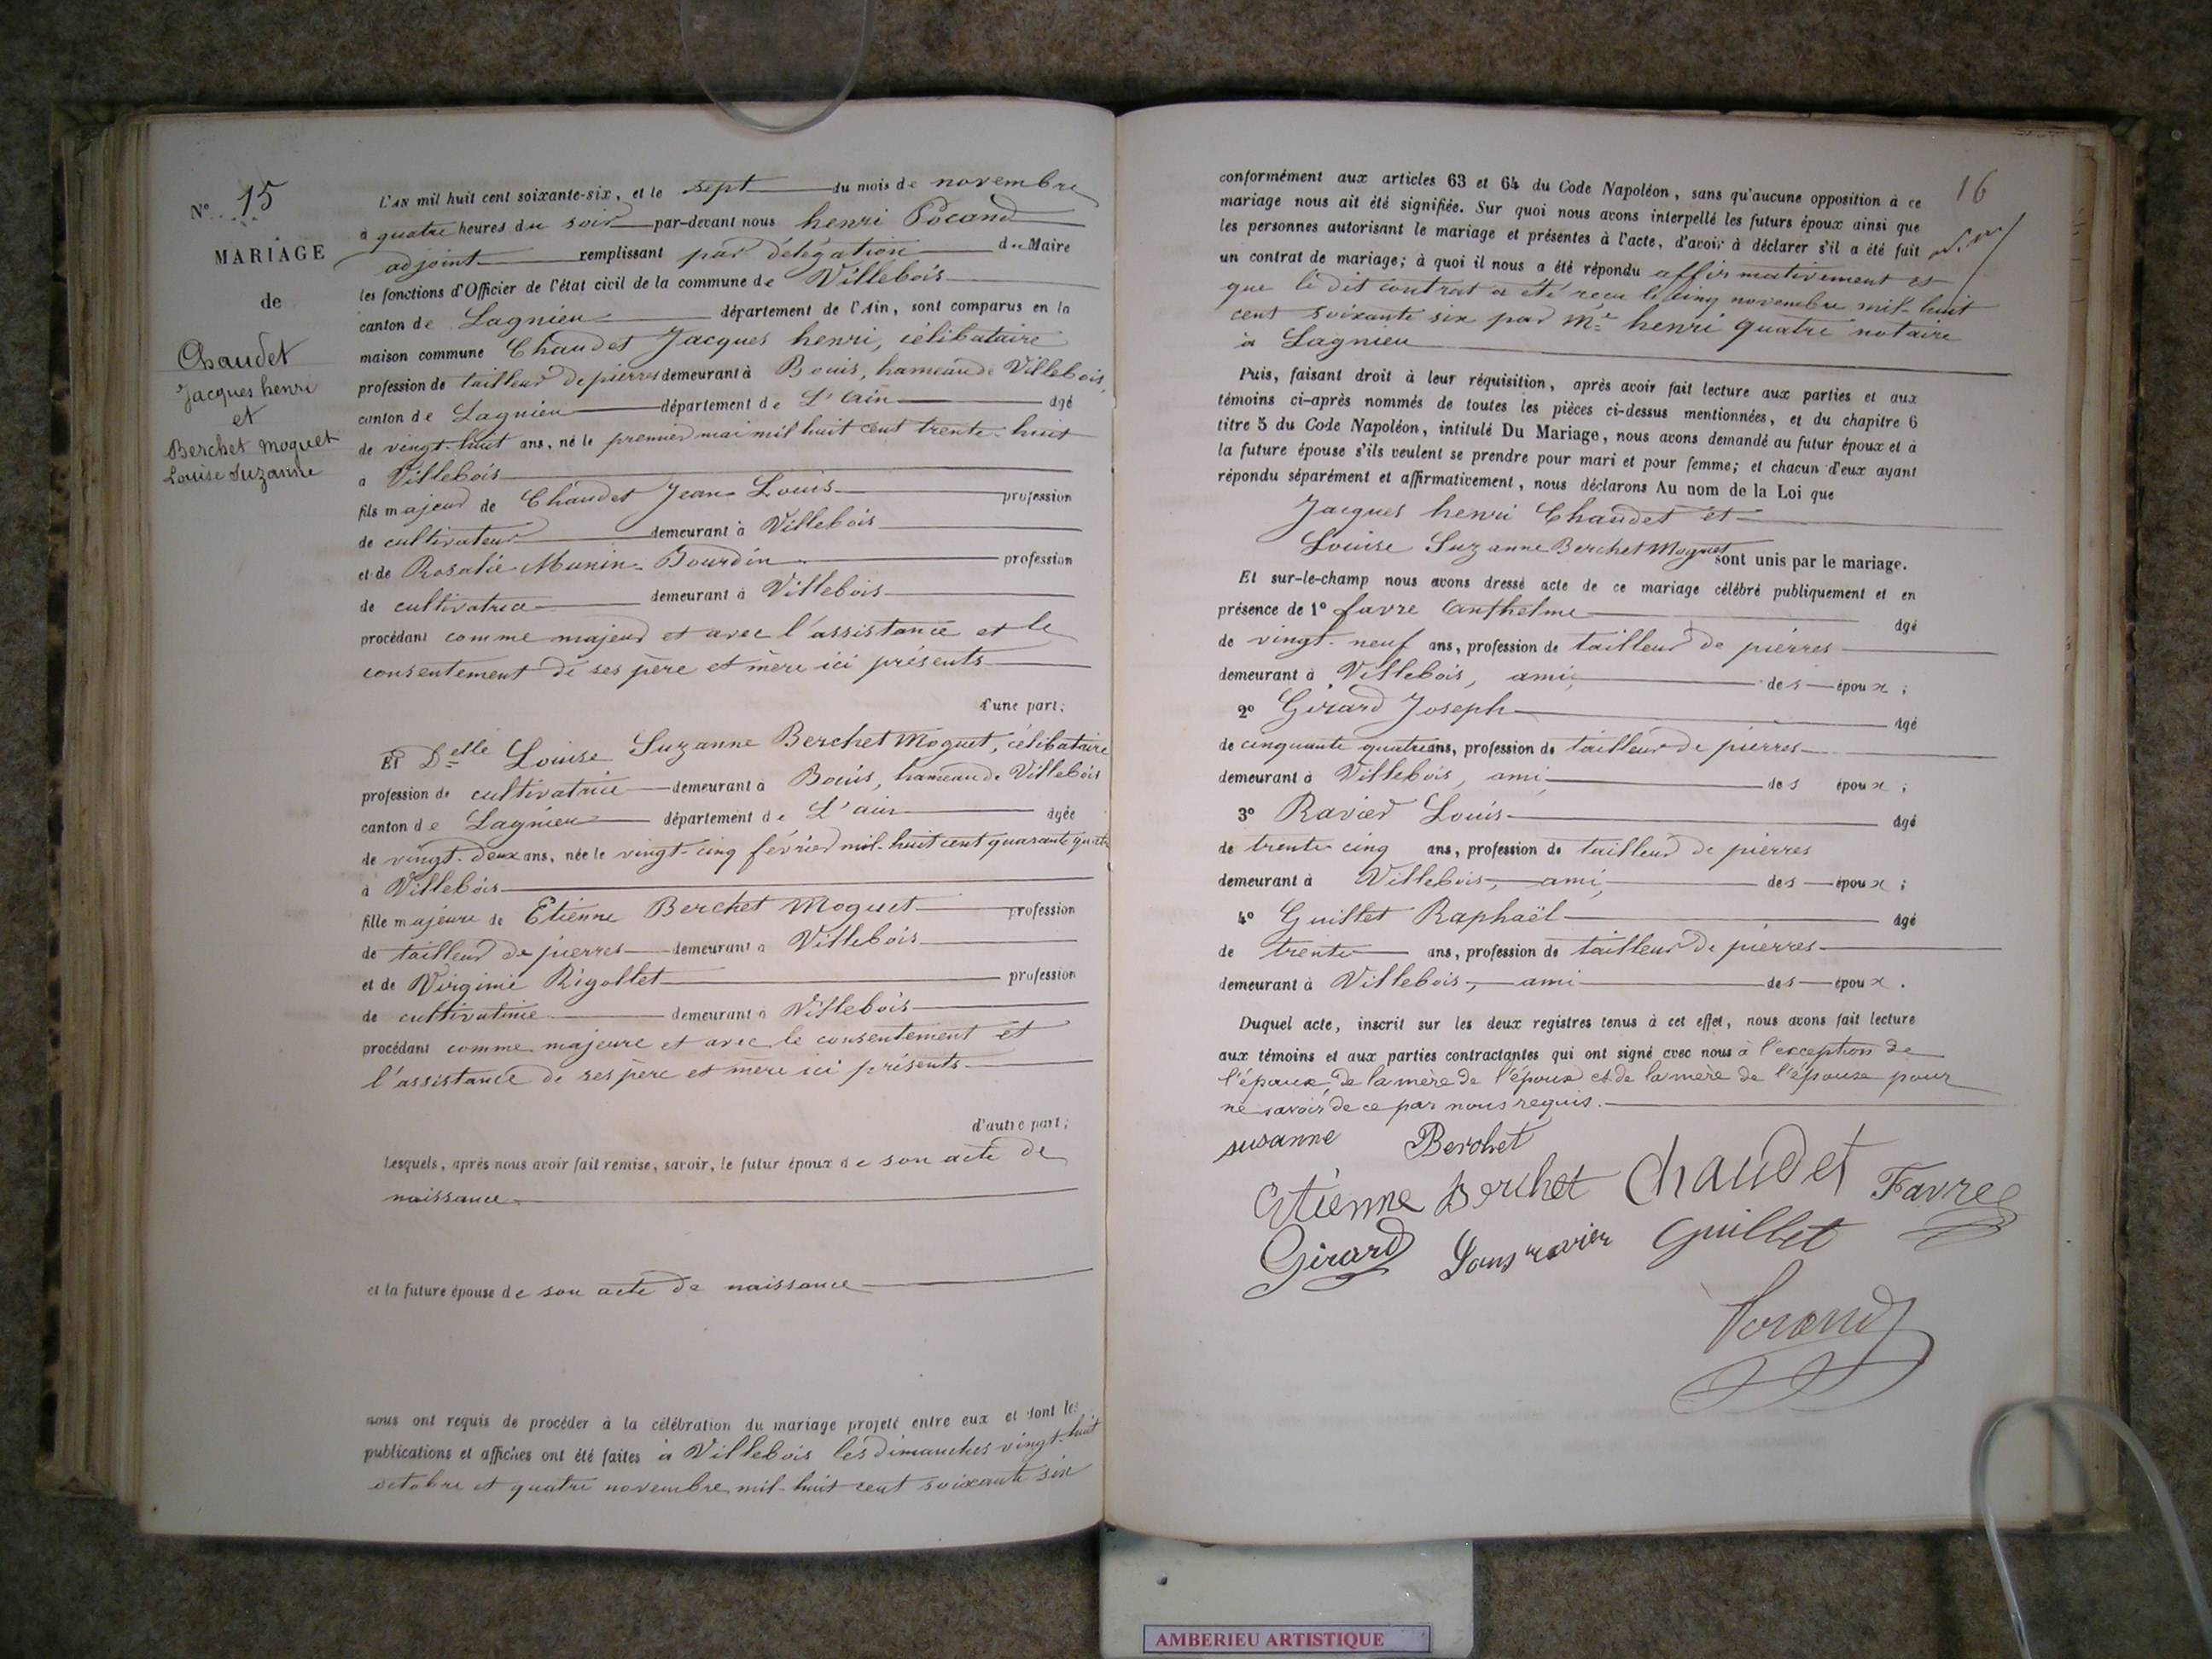 N° 15
MARIAGE
de
Chaudet
Jacques henri
et
Berchet Moguet
Louise Suzanne
L'AN mil huit cent soixante-six, et le sept du mois de novembre
à quatre heures du soir par-devant nous henri Pocand
adjoint remplissant par délégation du Maire
les fonctions d'Officier de l'état civil de la commune de Villebois
canton de Lagnieu département de l'Ain, sont comparus en la
maison commune Chaudet Jacques henri, célibataire
profession de tailleur de pierres demeurant à Bouis, hameau de Villebois,
canton de Lagnieu département de L'Ain âgé
de vingt-huit ans, né le premier mai mil huit cent trente-huit
à Villebois
fils majeur de Chaudet Jean Louis profession
de cultivateur demeurant à Villebois
et de Rosalie Munin-Bourdin profession
de cultivatrice demeurant à Villebois
procédant comme majeur et avec l'assistance et le
consentement de ses père et mère ici présents
d'une part;
Et Delle Louise Suzanne Berchet Moguet, célibataire
profession de cultivatrice demeurant à Bouis, hameau de Villebois
canton de Lagnieu département de L'ain âgée
de vingt-deux ans, née le vingt-cinq février mil-huit cent quarante quatre
à Villebois
fille majeure de Etienne Berchet Moguet profession
de tailleur de pierres demeurant à Villebois
et de Virginie Rigollet profession
de cultivatrice demeurant à Villebois
procédant comme majeure et avec le consentement et
l'assistance de ses père et mère ici présents
d'autre part;
Lesquels, après nous avoir fait remise, savoir, le futur époux de son acte de
naissance
et la future épouse de son acte de naissance
nous ont requis de procéder à la célébration du mariage projeté entre eux et dont les
publications et affiches ont été faites à Villebois les dimanches vingt-huit
octobre et quatre novembre mil-huit cent soixante six
16
conformément aux articles 63 et 64 du Code Napoléon, sans qu'aucune opposition à ce
mariage nous ait été signifiée. Sur quoi nous avons interpellé les futurs époux ainsi que
les personnes autorisant le mariage et présentes à l'acte, d'avoir à déclarer s'il a été fait
un contrat de mariage; à quoi il nous a été répondu affirmativement et
que le dit contrat a été reçu le cinq novembre mil-huit
cent soixante six par Me henri quatre notaire
à Lagnieu
Puis, faisant droit à leur réquisition, après avoir fait lecture aux parties et aux
témoins ci-après nommés de toutes les pièces ci-dessus mentionnées, et du chapitre 6
titre 5 du Code Napoléon, intitulé Du Mariage, nous avons demandé au futur époux et à
la future épouse s'ils veulent se prendre pour mari et pour femme; et chacun d'eux ayant
répondu séparément et affirmativement, nous déclarons Au nom de la Loi que
Jacques henri Chaudet et
Louise Suzanne Berchet Moguet sont unis par le mariage.
Et sur-le-champ nous avons dressé acte de ce mariage célébré publiquement et en
présence de 1° favre Anthelme âgé
de vingt-neuf ans, profession de tailleur de pierres
demeurant à Villebois, ami des époux;
2° Girard Joseph âgé
de cinquante quatre ans, profession de tailleur de pierres
demeurant à Villebois, ami des époux;
3° Ravier Louis âgé
de trente cinq ans, profession de tailleur de pierres
demeurant à Villebois, ami, des époux;
4° Guillet Raphaël âgé
de trente ans, profession de tailleur de pierres
demeurant à Villebois, ami des époux.
Duquel acte, inscrit sur les deux registres tenus à cet effet, nous avons fait lecture
aux témoins et aux parties contractantes qui ont signé avec nous à l'exception de
l'époux, de la mère de l'époux et de la mère de l'épouse pour
ne savoir de ce par nous requis.
susanne Berchet
Etienne Berchet Chaudet Favre
Girard Louis ravier Guillet
AMBERIEU ARTISTIQUE